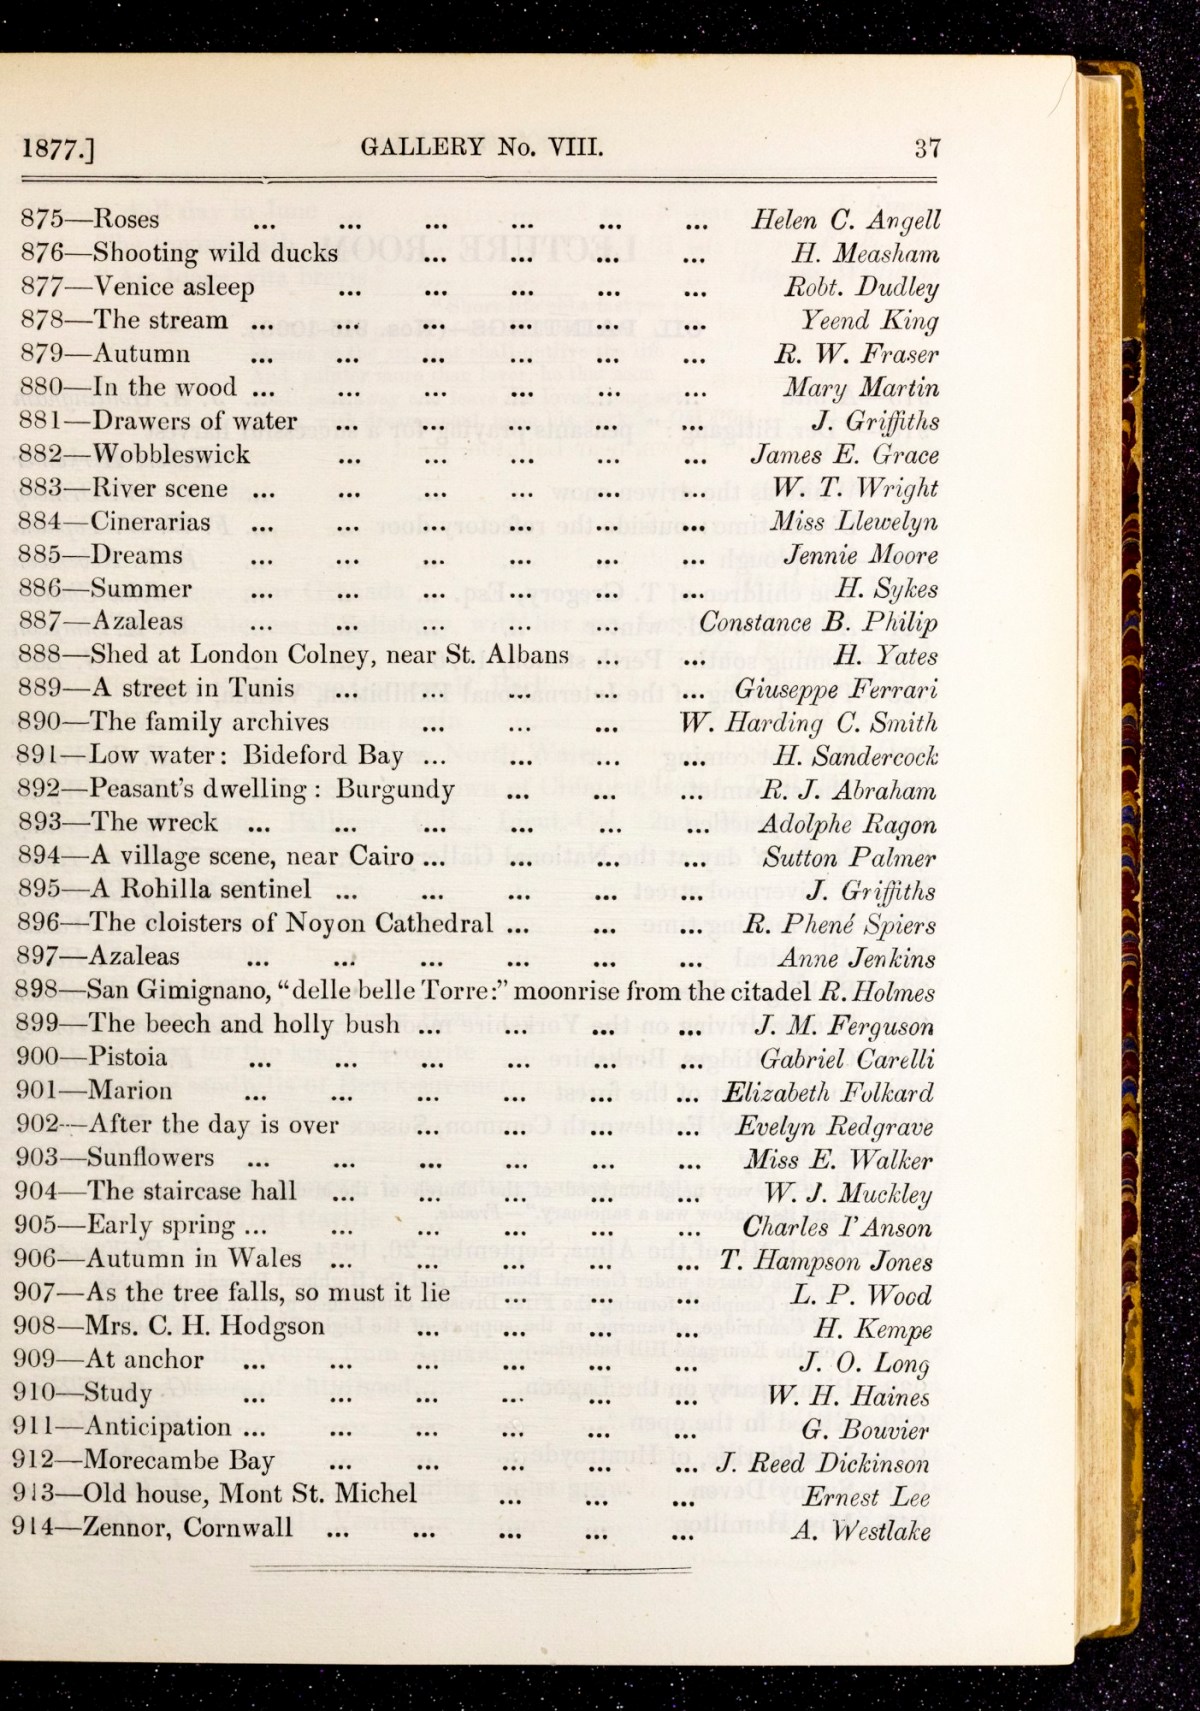 1877.] GALLERY No. VIII. 37
875—Roses ... ... ... ... ... ... Helen C. Angell
876—Shooting wild ducks ... ... ... ... H. Measham
877—Venice asleep ... ... ... ... ... Robt. Dudley
878—The stream ... ... ... ... ... ... Yeend King
879—Autumn ... ... ... ... ... ... R. W. Fraser
880—In the wood ... ... ... ... ... ... Mary Martin
881—Drawers of water ... ... ... ... ... J. Griffiths
882—Wobbleswick ... ... ... ... ... James E. Grace
883—River scene ... ... ... ... ... ... W. T. Wright
884—Cinerarias ... ... ... ... ... ... Miss Llewelyn
885—Dreams ... ... ... ... ... ... Jennie Moore
886—Summer ... ... ... ... ... ... H. Sykes
887—Azaleas ... ... ... ... ... Constance B. Philip
888—Shed at London Colney, near St. Albans ... ... H. Yates
889—A street in Tunis ... ... ... ... ... Giuseppe Ferrari
890—The family archives ... ... ... W. Harding C. Smith
891—Low water: Bideford Bay ... ... ... ... H. Sandercock
892—Peasant's dwelling: Burgundy ... ... ... R. J. Abraham
893—The wreck ... ... ... ... ... ... Adolphe Ragon
894—A village scene, near Cairo ... ... ... ... Sutton Palmer
895—A Rohilla sentinel ... ... ... ... ... J. Griffiths
896—The cloisters of Noyon Cathedral ... ... ... R. Phené Spiers
897—Azaleas ... ... ... ... ... ... Anne Jenkins
898—San Gimignano, "delle belle Torre:" moonrise from the citadel R. Holmes
899—The beech and holly bush ... ... ... ... J. M. Ferguson
900—Pistoia ... ... ... ... ... ... Gabriel Carelli
901—Marion ... ... ... ... ... ... Elizabeth Folkard
902—After the day is over ... ... ... ... Evelyn Redgrave
903—Sunflowers ... ... ... ... ... ... Miss E. Walker
904—The staircase hall ... ... ... ... ... W. J. Muckley
905—Early spring ... ... ... ... ... ... Charles I'Anson
906—Autumn in Wales ... ... ... ... ... T. Hampson Jones
907—As the tree falls, so must it lie ... ... ... L. P. Wood
908—Mrs. C. H. Hodgson ... ... ... ... H. Kempe
909—At anchor ... ... ... ... ... ... J. O. Long
910—Study ... ... ... ... ... ... W. H. Haines
911—Anticipation ... ... ... ... ... ... G. Bouvier
912—Morecambe Bay ... ... ... ... ... J. Reed Dickinson
913—Old house, Mont St. Michel ... ... ... Ernest Lee
914—Zennor, Cornwall ... ... ... ... ... A. Westlake